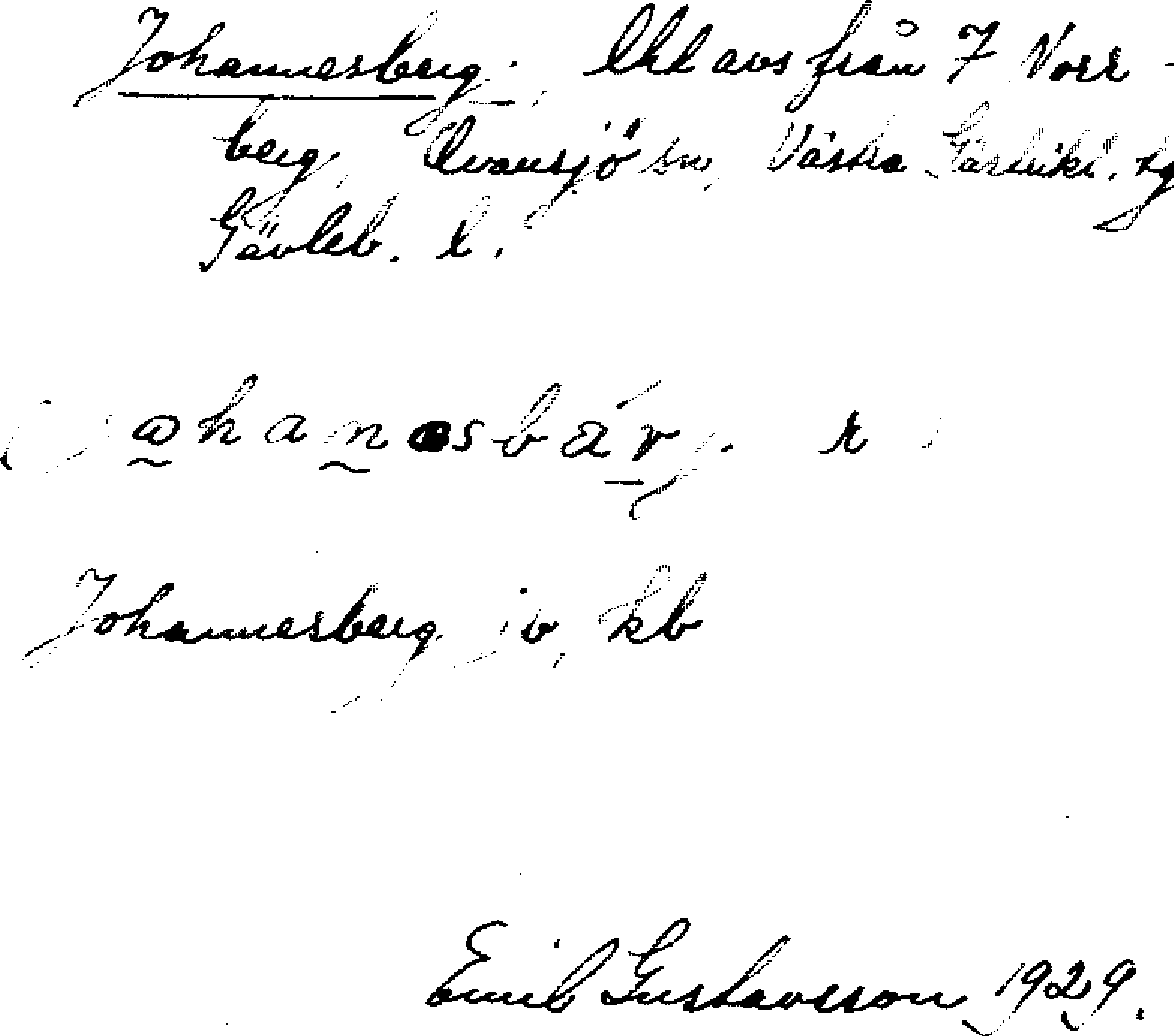 Johannesberg, lht avs från 7 Norr-
berg, Ovansjö sn, Västra Gästrikl. tg
Gävleb. l.
johanesbär j. r
Johannesberg jb, kb
Emil Gustavsson 1929.